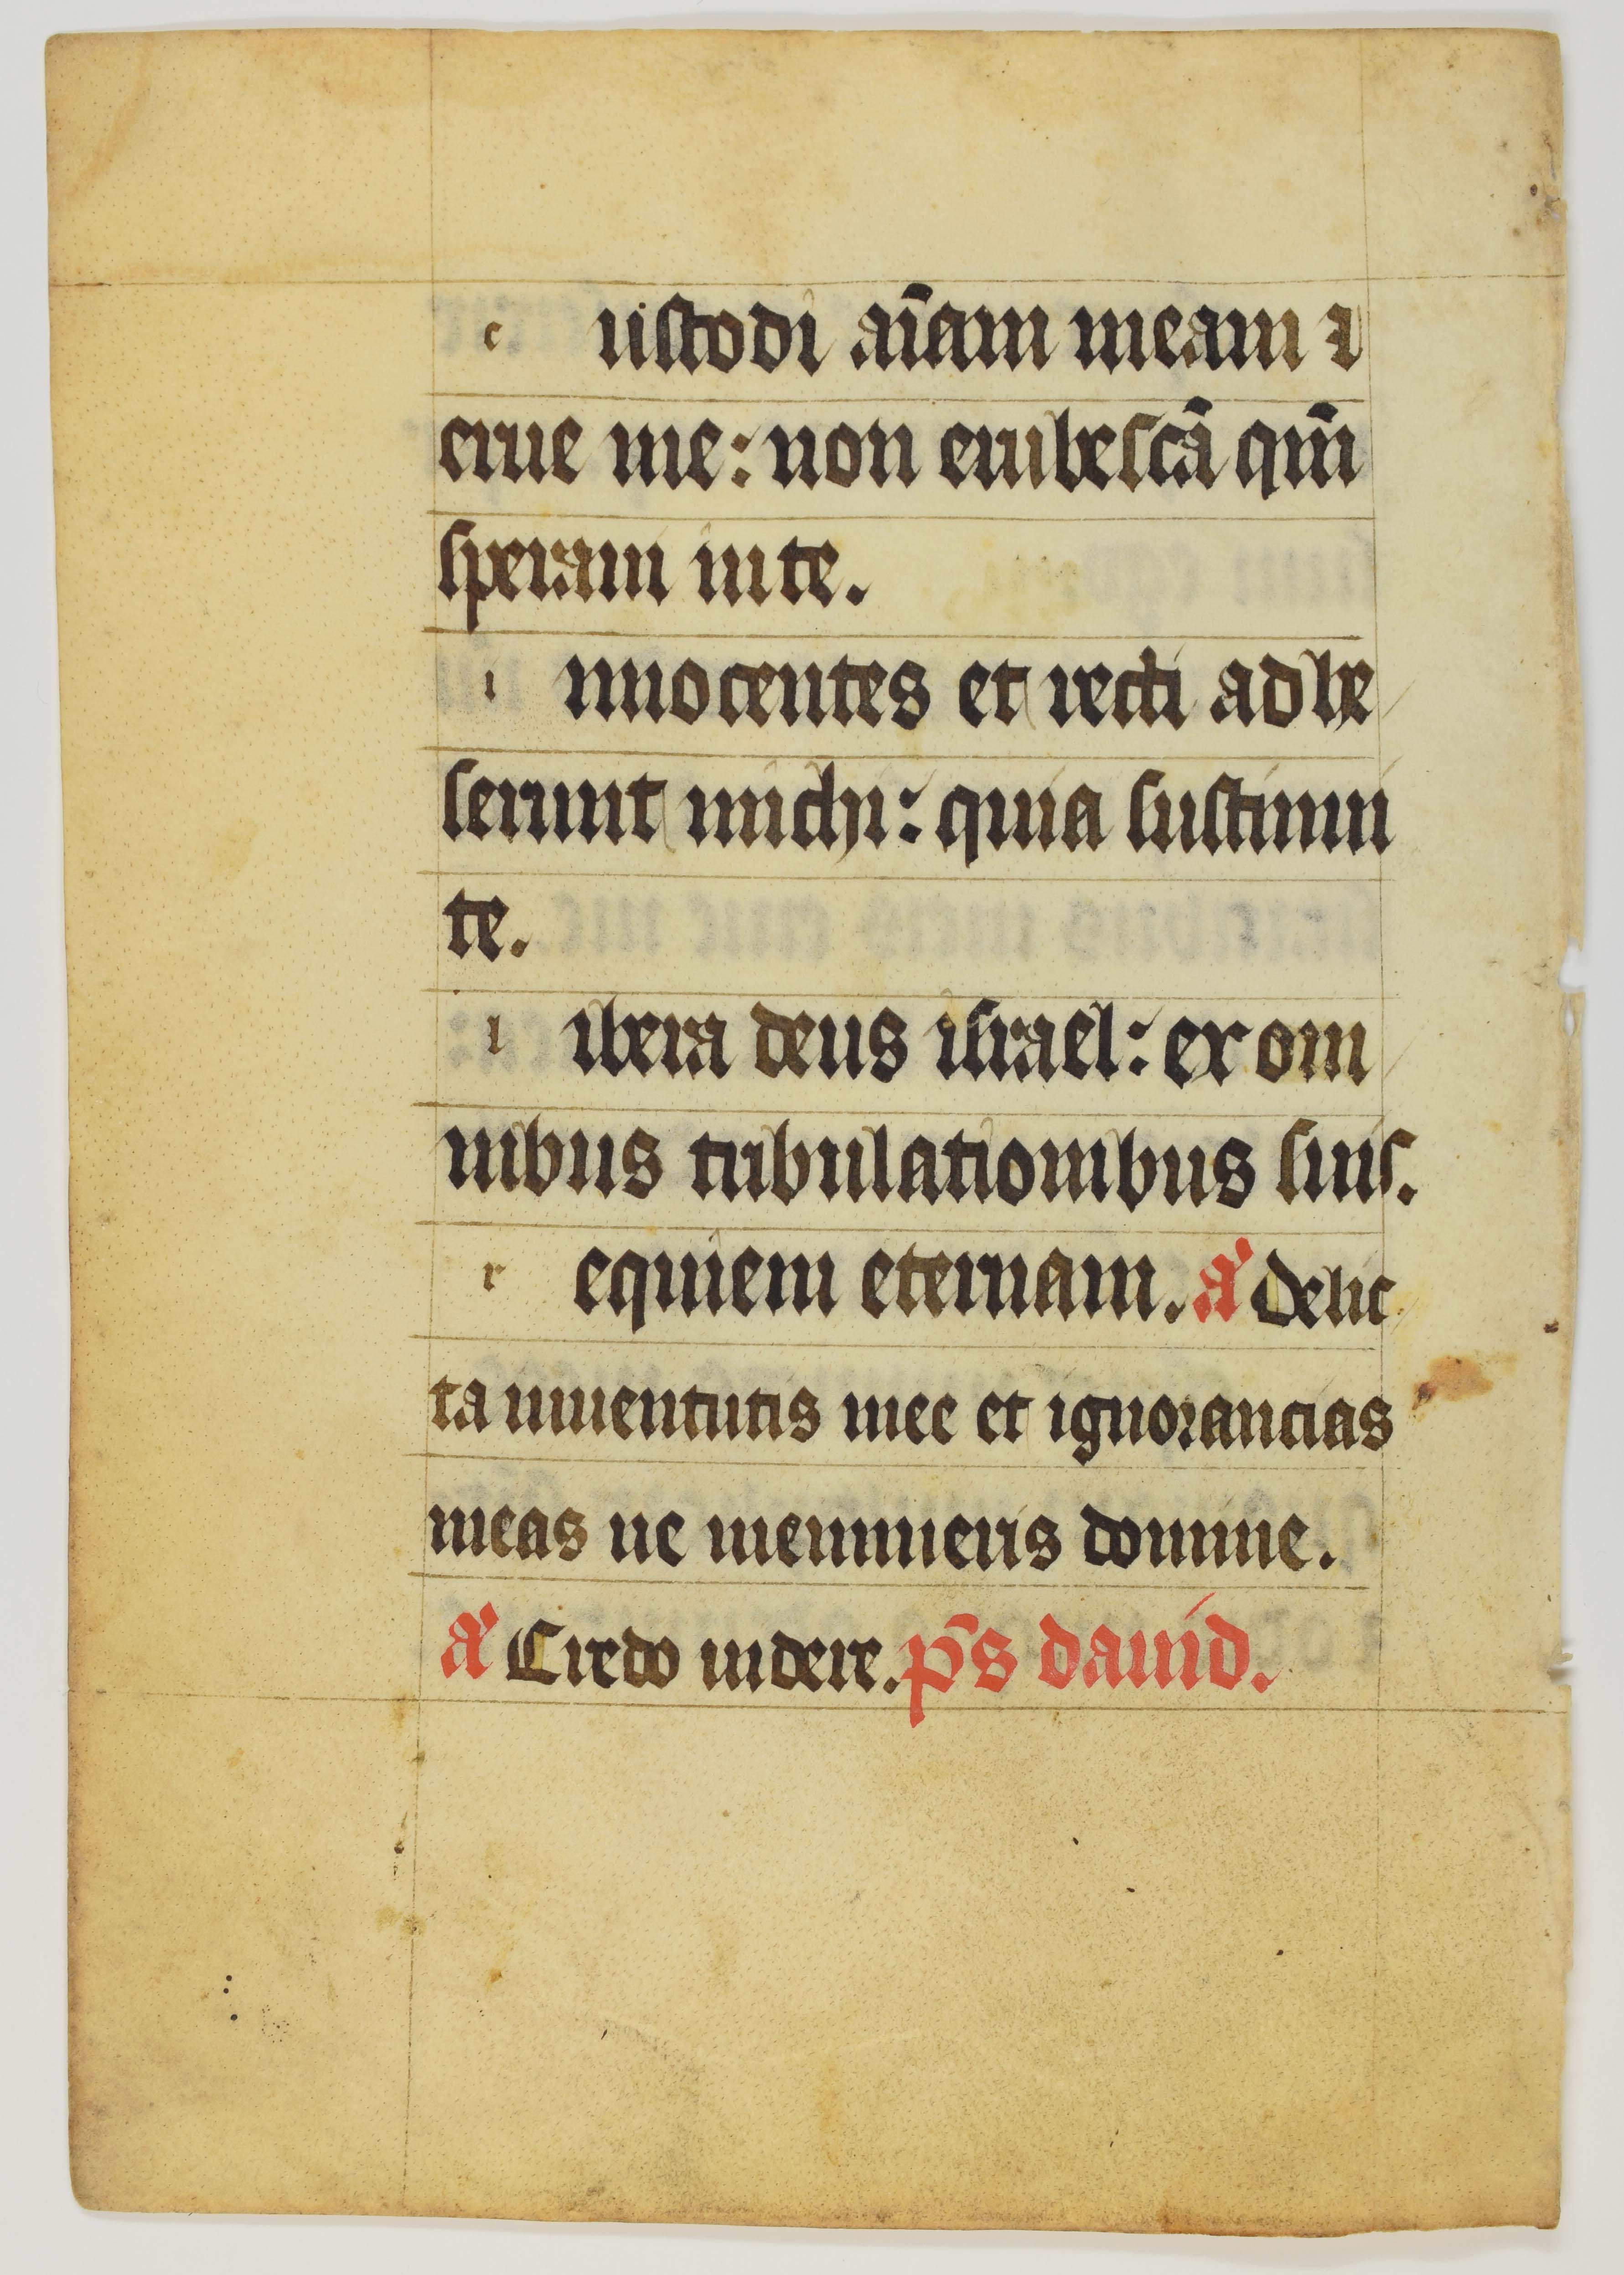 c ustodi aīam meam ⁊
erue me: non erubescā qm̄
speraui in te.
i nnocentes et recti adhe
serunt michi: quia sustinui
te.
l ibera deus israel: ex om
nibus tribulationibus suis.
r equiem eternam. a᷎ Delic
ta iuuentutis mee et ignorancias
meas ne memineris domine.
a᷎ Credo videre. p̄s dauid.